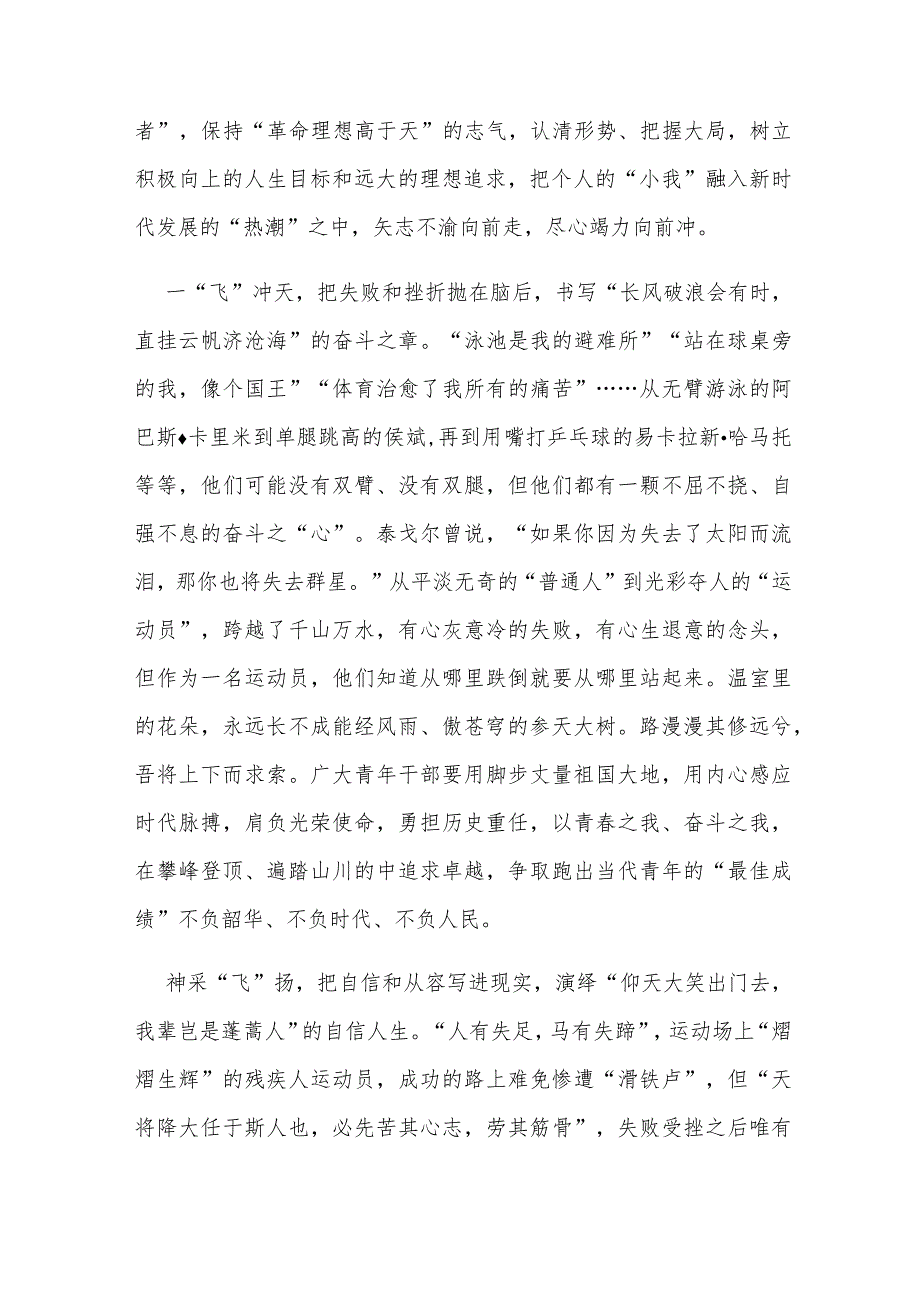 者”，保持“革命理想高于天”的志气，认清形势、把握大局，树立
积极向上的人生目标和远大的理想追求，把个人的“小我”融入新时
代发展的“热潮”之中，矢志不渝向前走，尽心竭力向前冲。
一“飞”冲天，把失败和挫折抛在脑后，书写“长风破浪会有时，
直挂云帆济沧海”的奋斗之章。“泳池是我的避难所”“站在球桌旁
的我，像个国王”“体育治愈了我所有的痛苦”……从无臂游泳的阿
巴斯♦卡里米到单腿跳高的侯斌,再到用嘴打乒乓球的易卡拉新•哈马托
等等，他们可能没有双臂、没有双腿，但他们都有一颗不屈不挠、自
强不息的奋斗之“心”。泰戈尔曾说，“如果你因为失去了太阳而流
泪，那你也将失去群星。”从平淡无奇的“普通人”到光彩夺人的“运
动员”，跨越了千山万水，有心灰意冷的失败，有心生退意的念头，
但作为一名运动员，他们知道从哪里跌倒就要从哪里站起来。温室里
的花朵，永远长不成能经风雨、傲苍穹的参天大树。路漫漫其修远兮，
吾将上下而求索。广大青年干部要用脚步丈量祖国大地，用内心感应
时代脉搏，肩负光荣使命，勇担历史重任，以青春之我、奋斗之我，
在攀峰登顶、遍踏山川的中追求卓越，争取跑出当代青年的“最佳成
绩”不负韶华、不负时代、不负人民。
神采“飞”扬，把自信和从容写进现实，演绎“仰天大笑出门去，
我辈岂是蓬蒿人”的自信人生。“人有失足，马有失蹄”，运动场上“熠
熠生辉”的残疾人运动员，成功的路上难免惨遭“滑铁卢”，但“天
将降大任于斯人也，必先苦其心志，劳其筋骨”，失败受挫之后唯有